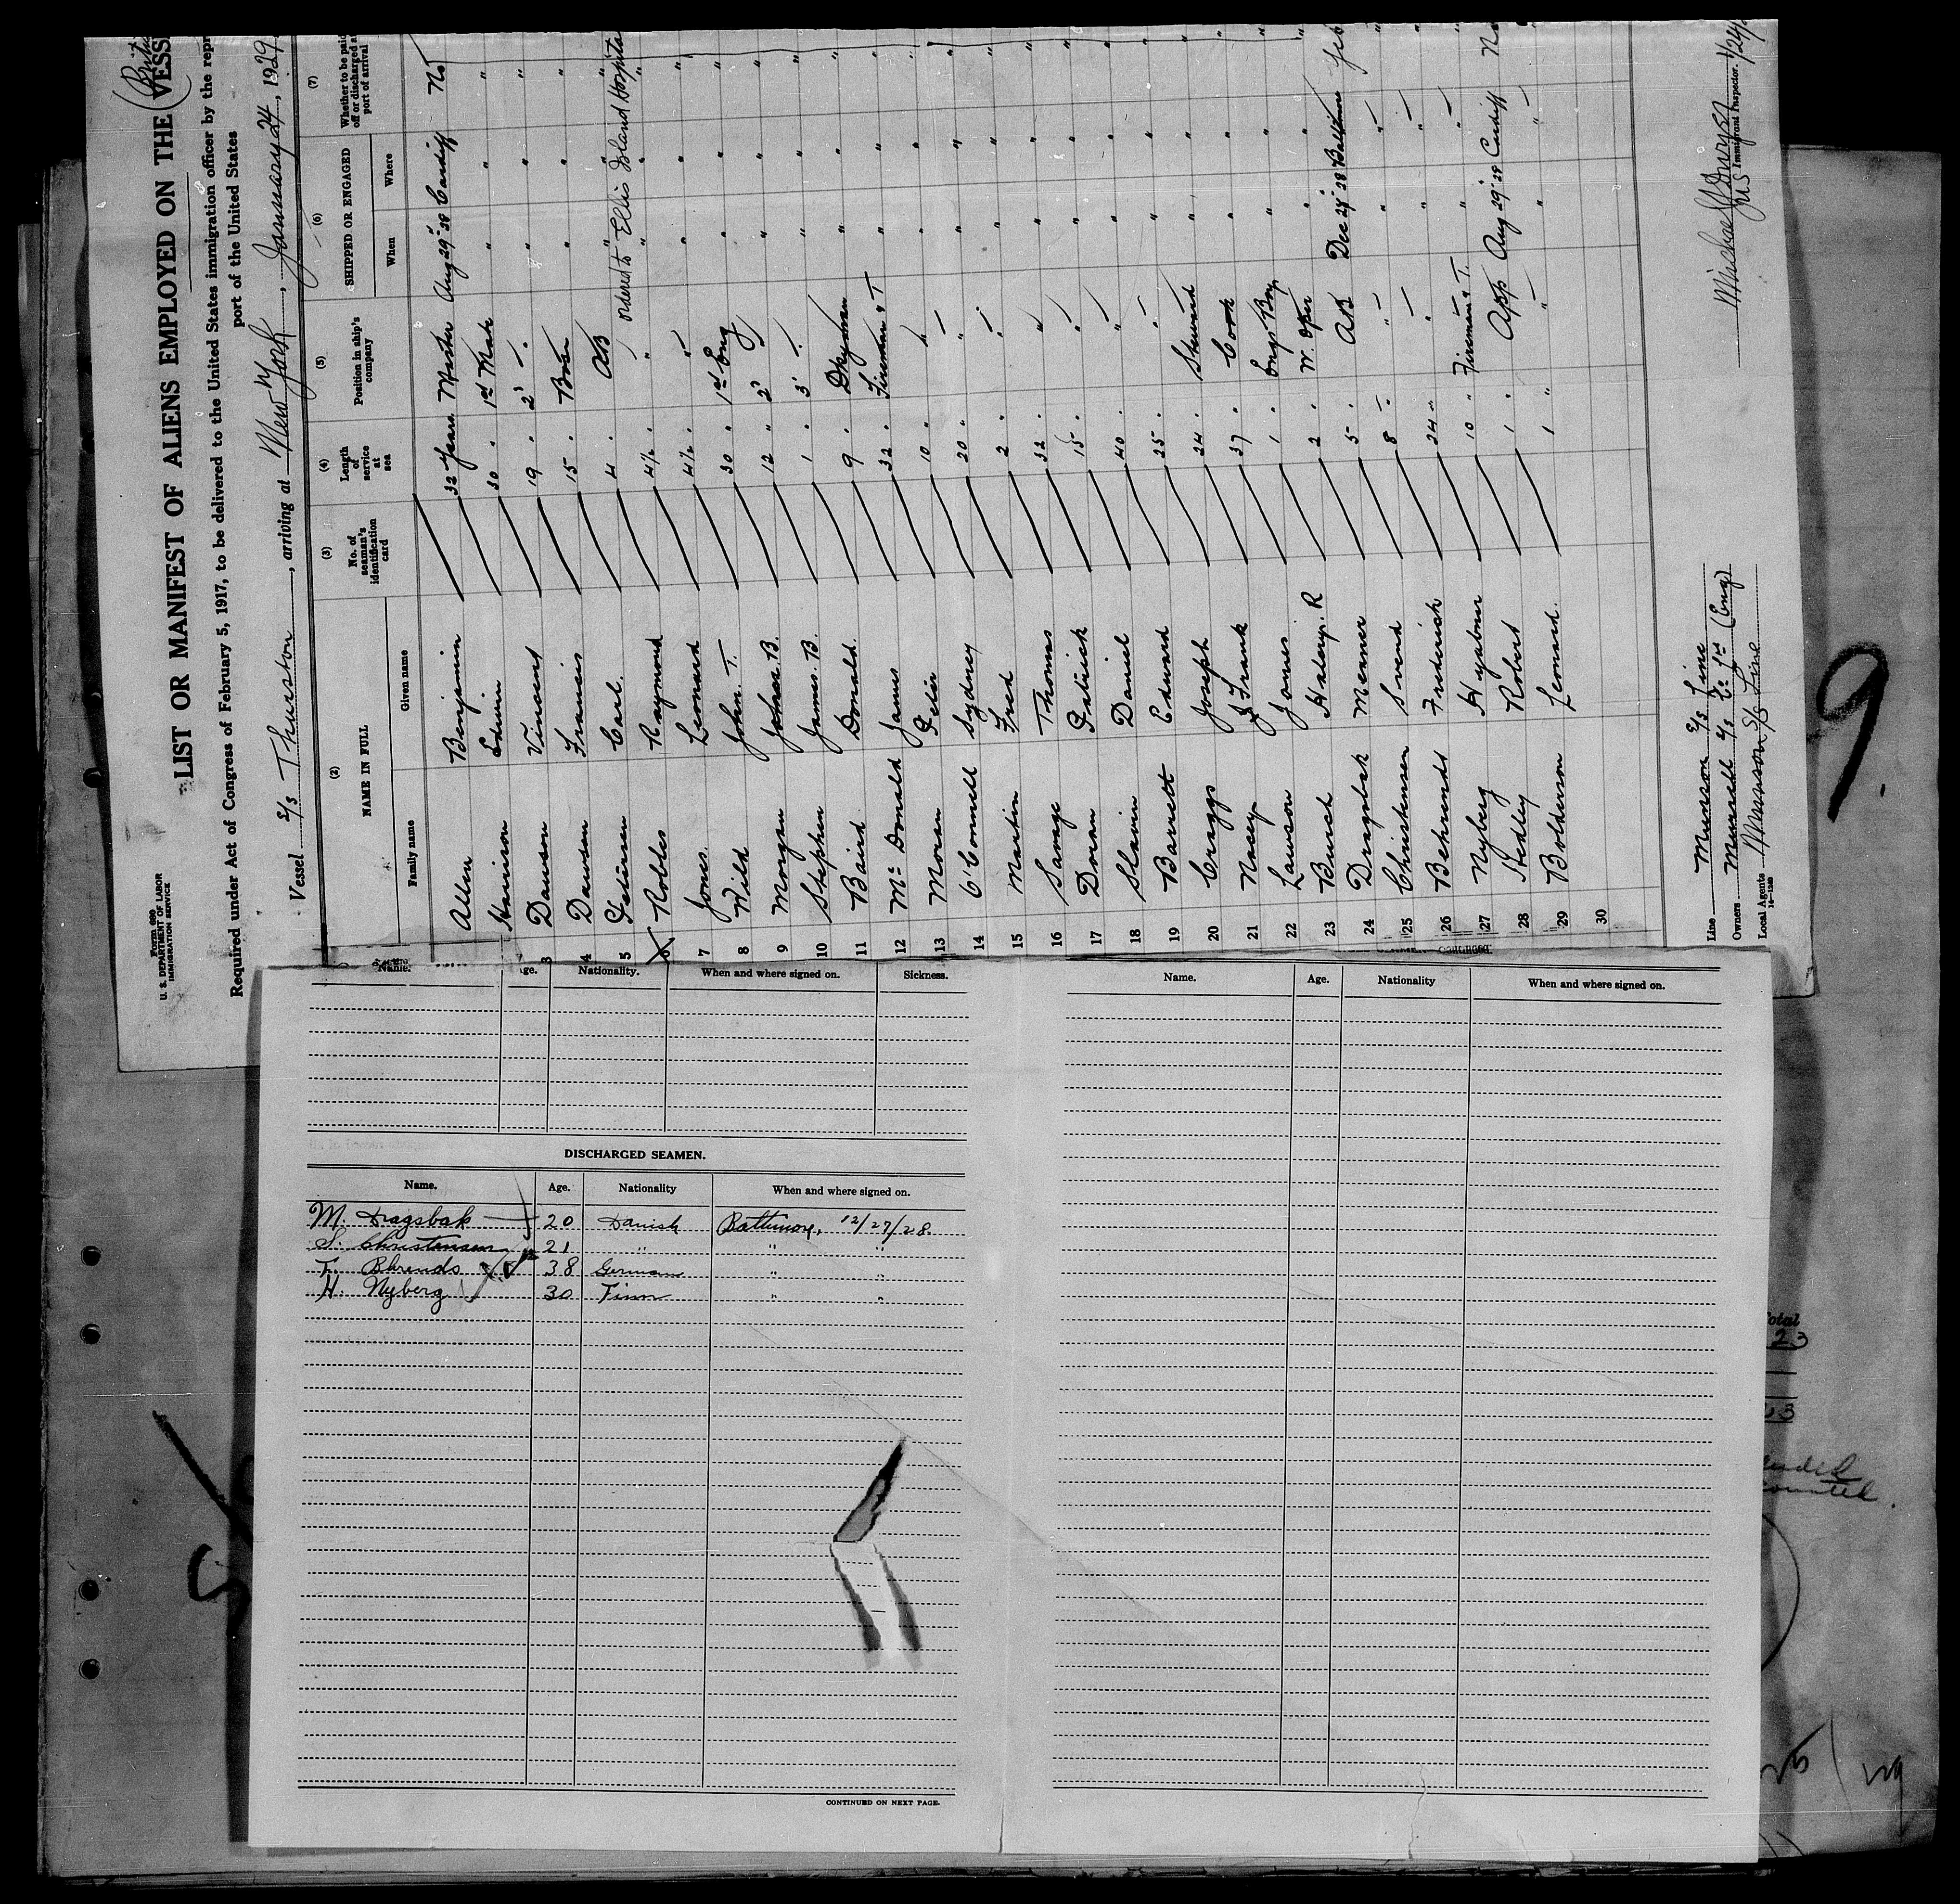 Form 680
U. S. DEPARTMENT OF LABOR
IMMIGRATION SERVICE
LIST OR MANIFEST OF ALIENS EMPLOYED ON THE VESS
Required under Act of Congress of February 5, 1917, to be delivered to the United States immigration officer by the repr
port of the United States
Vessel S/s Thurston, arriving at New York, January 24, 1929
(2) (3) (4) (5) (6) (7)
NAME IN FULL No. of seaman's identification card Length of service at sea Position in ship's company SHIPPED OR ENGAGED Whether to be paid off or discharged at port of arrival
Family name Given name When Where
Allen Benjamin 32 Years Master Aug 29" 28 Cardiff No
Edwin 30 " 1st Mate " " "
3 Dawson Vincent 19 " 2d " " " "
4 Dawson Francis 15 " Bosn " " "
5 Carl 4 " AB " " "
6 Robles Raymond 4½ " " " " "
ordered to Ellis Island Hospital
7 Jones Leonard 4½ " " " " "
8 Wild John. T. 30 " 1st Eng " " "
9 Morgan B. 12 " 2d " " " "
10 Stephen James. B. 1 " 3d " " " "
11 Baird Donald. 9 " Dkyman " " "
12 Mc Donald James 32 " Fireman & T " " "
13 Moran Peter 10 " " " " "
14 O'Connell Sydney 20 " " " " "
15 Martin Fred 2 " " " " "
16 Savage Thomas 32 " " " " "
17 Doran Patrick 15 " " " " "
18 Slavin Daniel 40 " " " " "
19 Barrett Edward 25 " " " " "
20 Craggs Joseph 24 " Steward " " "
21 Nacey Frank 37 " Cook " " "
22 Lawson James 1 " Engs Boy " " "
23 Burch R 2 " W. Oper " " "
24 Dragsbak Werner 5 " AB Dec 27" 28 Baltimore
25 Christensen Svend 8 " " " "
26 Behrends Frederich 24 " " " "
27 Nyberg 10 " Fireman & T. " "
28 Hedley Robert 1 " App Aug 29" 28 Cardiff
29 Bolderson Leonard. 1 " " " "
30
Line Munson S/s Line
Owners Murrell S/s Co Ltd (Eng)
Local Agents Munson S/s Line
14—1240
Michael J Dwyer
US Immigrant Inspector. 1/24/
9.
Name. Age. Nationality. When and where signed on. Sickness.
DISCHARGED SEAMEN.
Name. Age. Nationality When and where signed on.
M. Dragsbak 20 Danish Baltimore, 12/27/28.
S. Christensen 21 " " "
F. Bhrends 38 German " "
H. Nyberg 30 Finn " "
CONTINUED ON NEXT PAGE.
Name. Age. Nationality When and where signed on.
Total
23